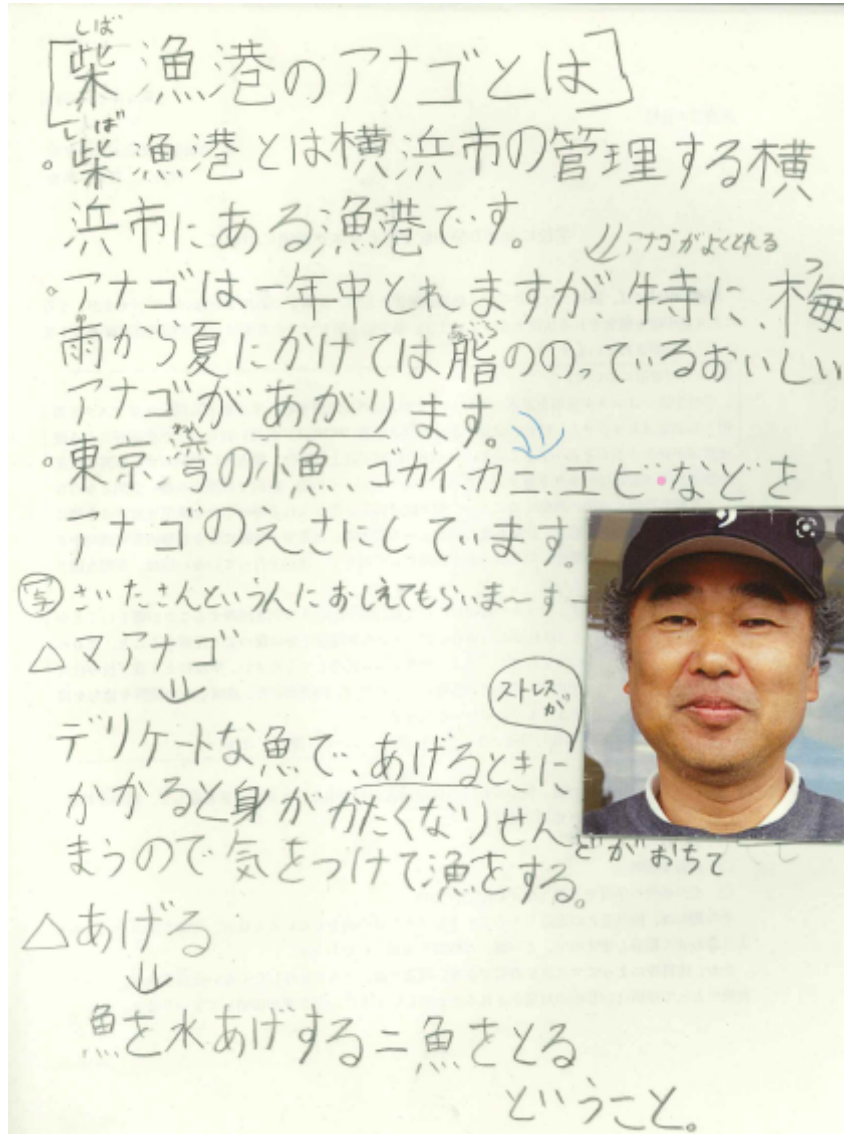 しば
[柴漁港のアナゴとは]
しば
。柴漁港とは横浜市の管理する横
浜市にある漁港です。
アナゴがよくとれる
。アナゴは一年中とれますが、特に、梅
つ
雨から夏にかけては脂ののっているおいしい
あぶら
アナゴがあがります。
わん
。東京湾の小魚、ゴカイ、カニ、エビ・などを
アナゴのえさにしています。
さいたさんという人におしえてもらいま〜す
△マアナゴ
↓
ストレスが
デリケートな魚で、あげるときに
かかると身がかたくなりせんどがおちて
まうので気をつけて漁をする。
△あげる
↓
魚を水あげする=魚をとる
ということ。